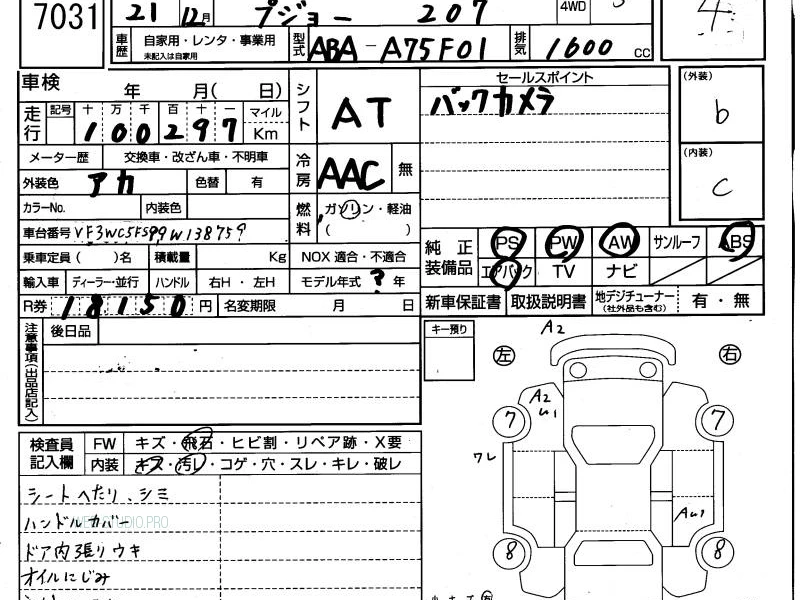 7031 21 12月 プジョー 207 4WD 4
車歴 自家用・レンタ・事業用 型式 ABA - A75F01 排気 1600 CC
未記入は自家用
車検 年 月( 日) シフト AT セールスポイント (外装) b
バックカメラ
走行 記号 十 万 千 百 十 一 マイル
100297 Km
メーター歴 交換車・改ざん車・不明車 冷房 AAC 無 (内装) c
外装色 アカ 色替 有
カラーNo. 内装色 燃料 ガソリン・軽油
( )
車台番号 VF3WC5FS99W138759 純正装備品 PS PW AW サンルーフ ABS
乗車定員( )名 積載量 Kg NOX 適合・不適合 エアバック TV ナビ
輸入車 ディーラー・並行 ハンドル 右H・左H モデル年式 ? 年
R券 18150 円 名変期限 月 日 新車保証書 取扱説明書 地デジチューナー 有・無
(社外品も含む)
注意事項(出品店記入) 後日品 キー預り A2
左 右
A2
U1
7 7
検査員記入欄 FW キズ・飛石・ヒビ割・リペア跡・X要
内装 キズ・汚レ・コゲ・穴・スレ・キレ・破レ ワレ
シートへたり、シミ
AU1
ハンドルカバー
WEB-STUDIO.PRO
ドア内張りウキ 8 8
オイルにじみ